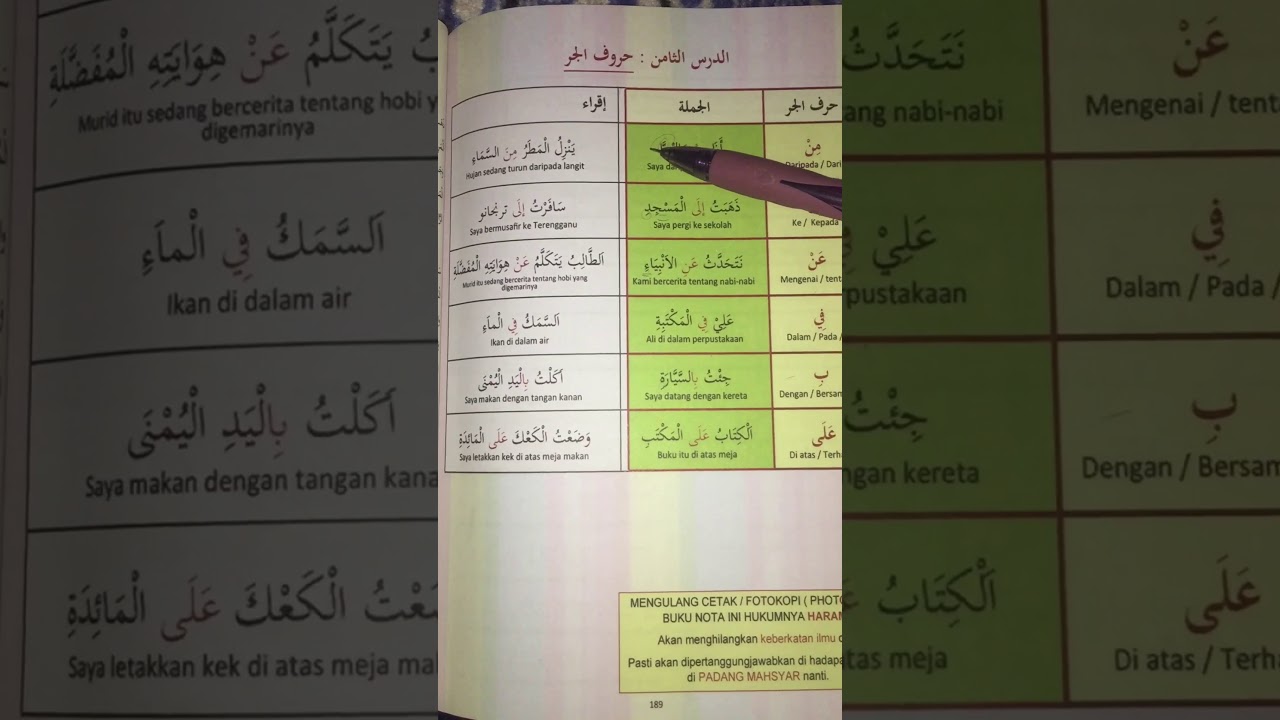 الدرس الثامن : حروف الجر
حرف الجر
الجملة
إقراء
مِنْ
Daripada / Dari
Saya
يَنْزِلُ الْمَطَرُ مِنَ السَّمَاءِ
Hujan sedang turun daripada langit
Ke / Kepada
ذَهَبَتُ إلَى الْمَسْجِدِ
Saya pergi ke sekolah
سَافَرْتُ إلَى ترنجانو
Saya bermusafir ke Terengganu
عَنْ
Mengenai / tent
نَتَحَدَّثُ عَنِ الاَنْبِيَاءِ
Kami bercerita tentang nabi-nabi
اَلطَّالِبُ يَتَكَلَّمُ عَنْ هِوَايَتِهِ الْمُفَضَّلَةِ
Murid itu sedang bercerita tentang hobi yang
digemarinya
فِي
Dalam / Pada /
عَلِيْ فِي الْمَكْتَبِةِ
Ali di dalam perpustakaan
اَلسَّمَكُ فِي الْماَءِ
Ikan di dalam air
بِ
Dengan / Bersam
جِئْتُ بِالسَّيَّارَةِ
Saya datang dengan kereta
اَكَلْتُ بِالْيَدِ الْيُمْنَى
Saya makan dengan tangan kanan
عَلَى
Di atas / Terh
اَلْكِتَابُ عَلَى الْمَكْتَبِ
Buku itu di atas meja
وَضَعْتُ الْكَعْكَ عَلَى الْمَائِدَةِ
Saya letakkan kek di atas meja makan
MENGULANG CETAK / FOTOKOPI ( PHOTO
BUKU NOTA INI HUKUMNYA HARAM
Akan menghilangkan keberkatan ilmu
Pasti akan dipertanggungjawabkan di hadapa
di PADANG MAHSYAR nanti.
189